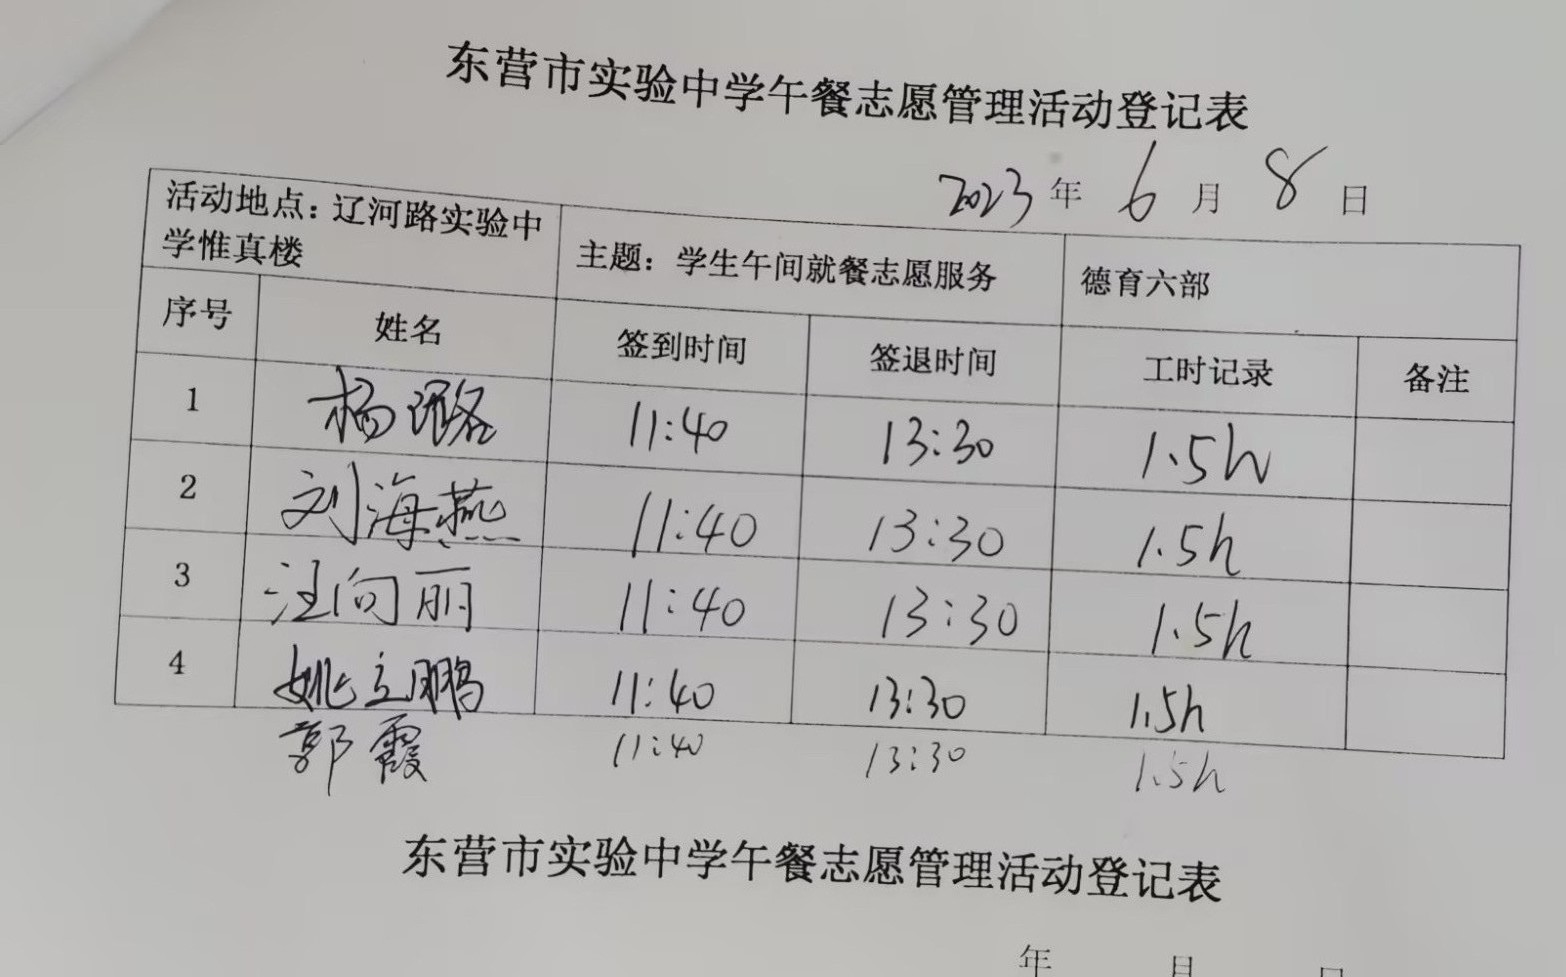 东营市实验中学午餐志愿管理活动登记表
2023 年 6 月 8 日
活动地点：辽河路实验中
学惟真楼
主题：学生午间就餐志愿服务
德育六部
序号 姓名 签到时间 签退时间 工时记录 备注
1 杨璐 11:40 13:30 1.5h
2 刘海燕 11:40 13:30 1.5h
3 汪向丽 11:40 13:30 1.5h
4 姚立鹏 11:40 13:30 1.5h
郭霞 11:40 13:30 1.5h
东营市实验中学午餐志愿管理活动登记表
年 月 日